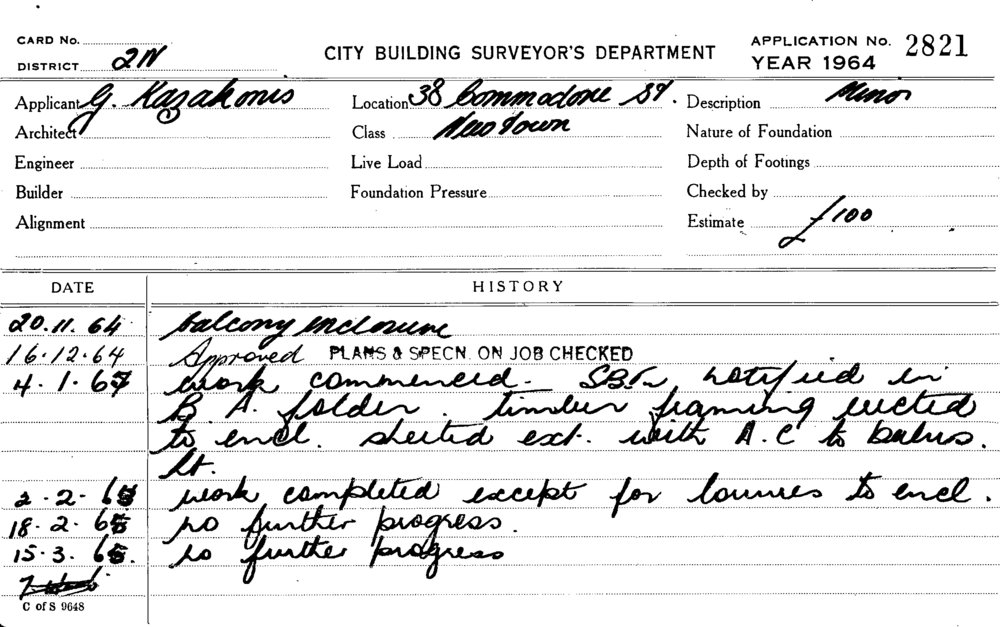 CARD No.
DISTRICT 2N
CITY BUILDING SURVEYOR'S DEPARTMENT
APPLICATION No. 2821
YEAR 1964
Applicant G. Kazakonis
Location 38 Commodore St.
Description Minor
Architect
Class Newtown
Nature of Foundation
Engineer
Live Load
Depth of Footings
Builder
Foundation Pressure
Checked by
Alignment
Estimate £100
DATE HISTORY
20.11.64 balcony enclosure
16.12.64 Approved PLANS & SPECN. ON JOB CHECKED
4.1.65 work commenced - notified in
B A. folder. timber framing erected
to encl. sheeted ext. with A.C to balus.
ht.
2-2-65 work completed except for louvres to encl.
18.2.65 no further progress.
15.3.65. no further progress
C of S 9648